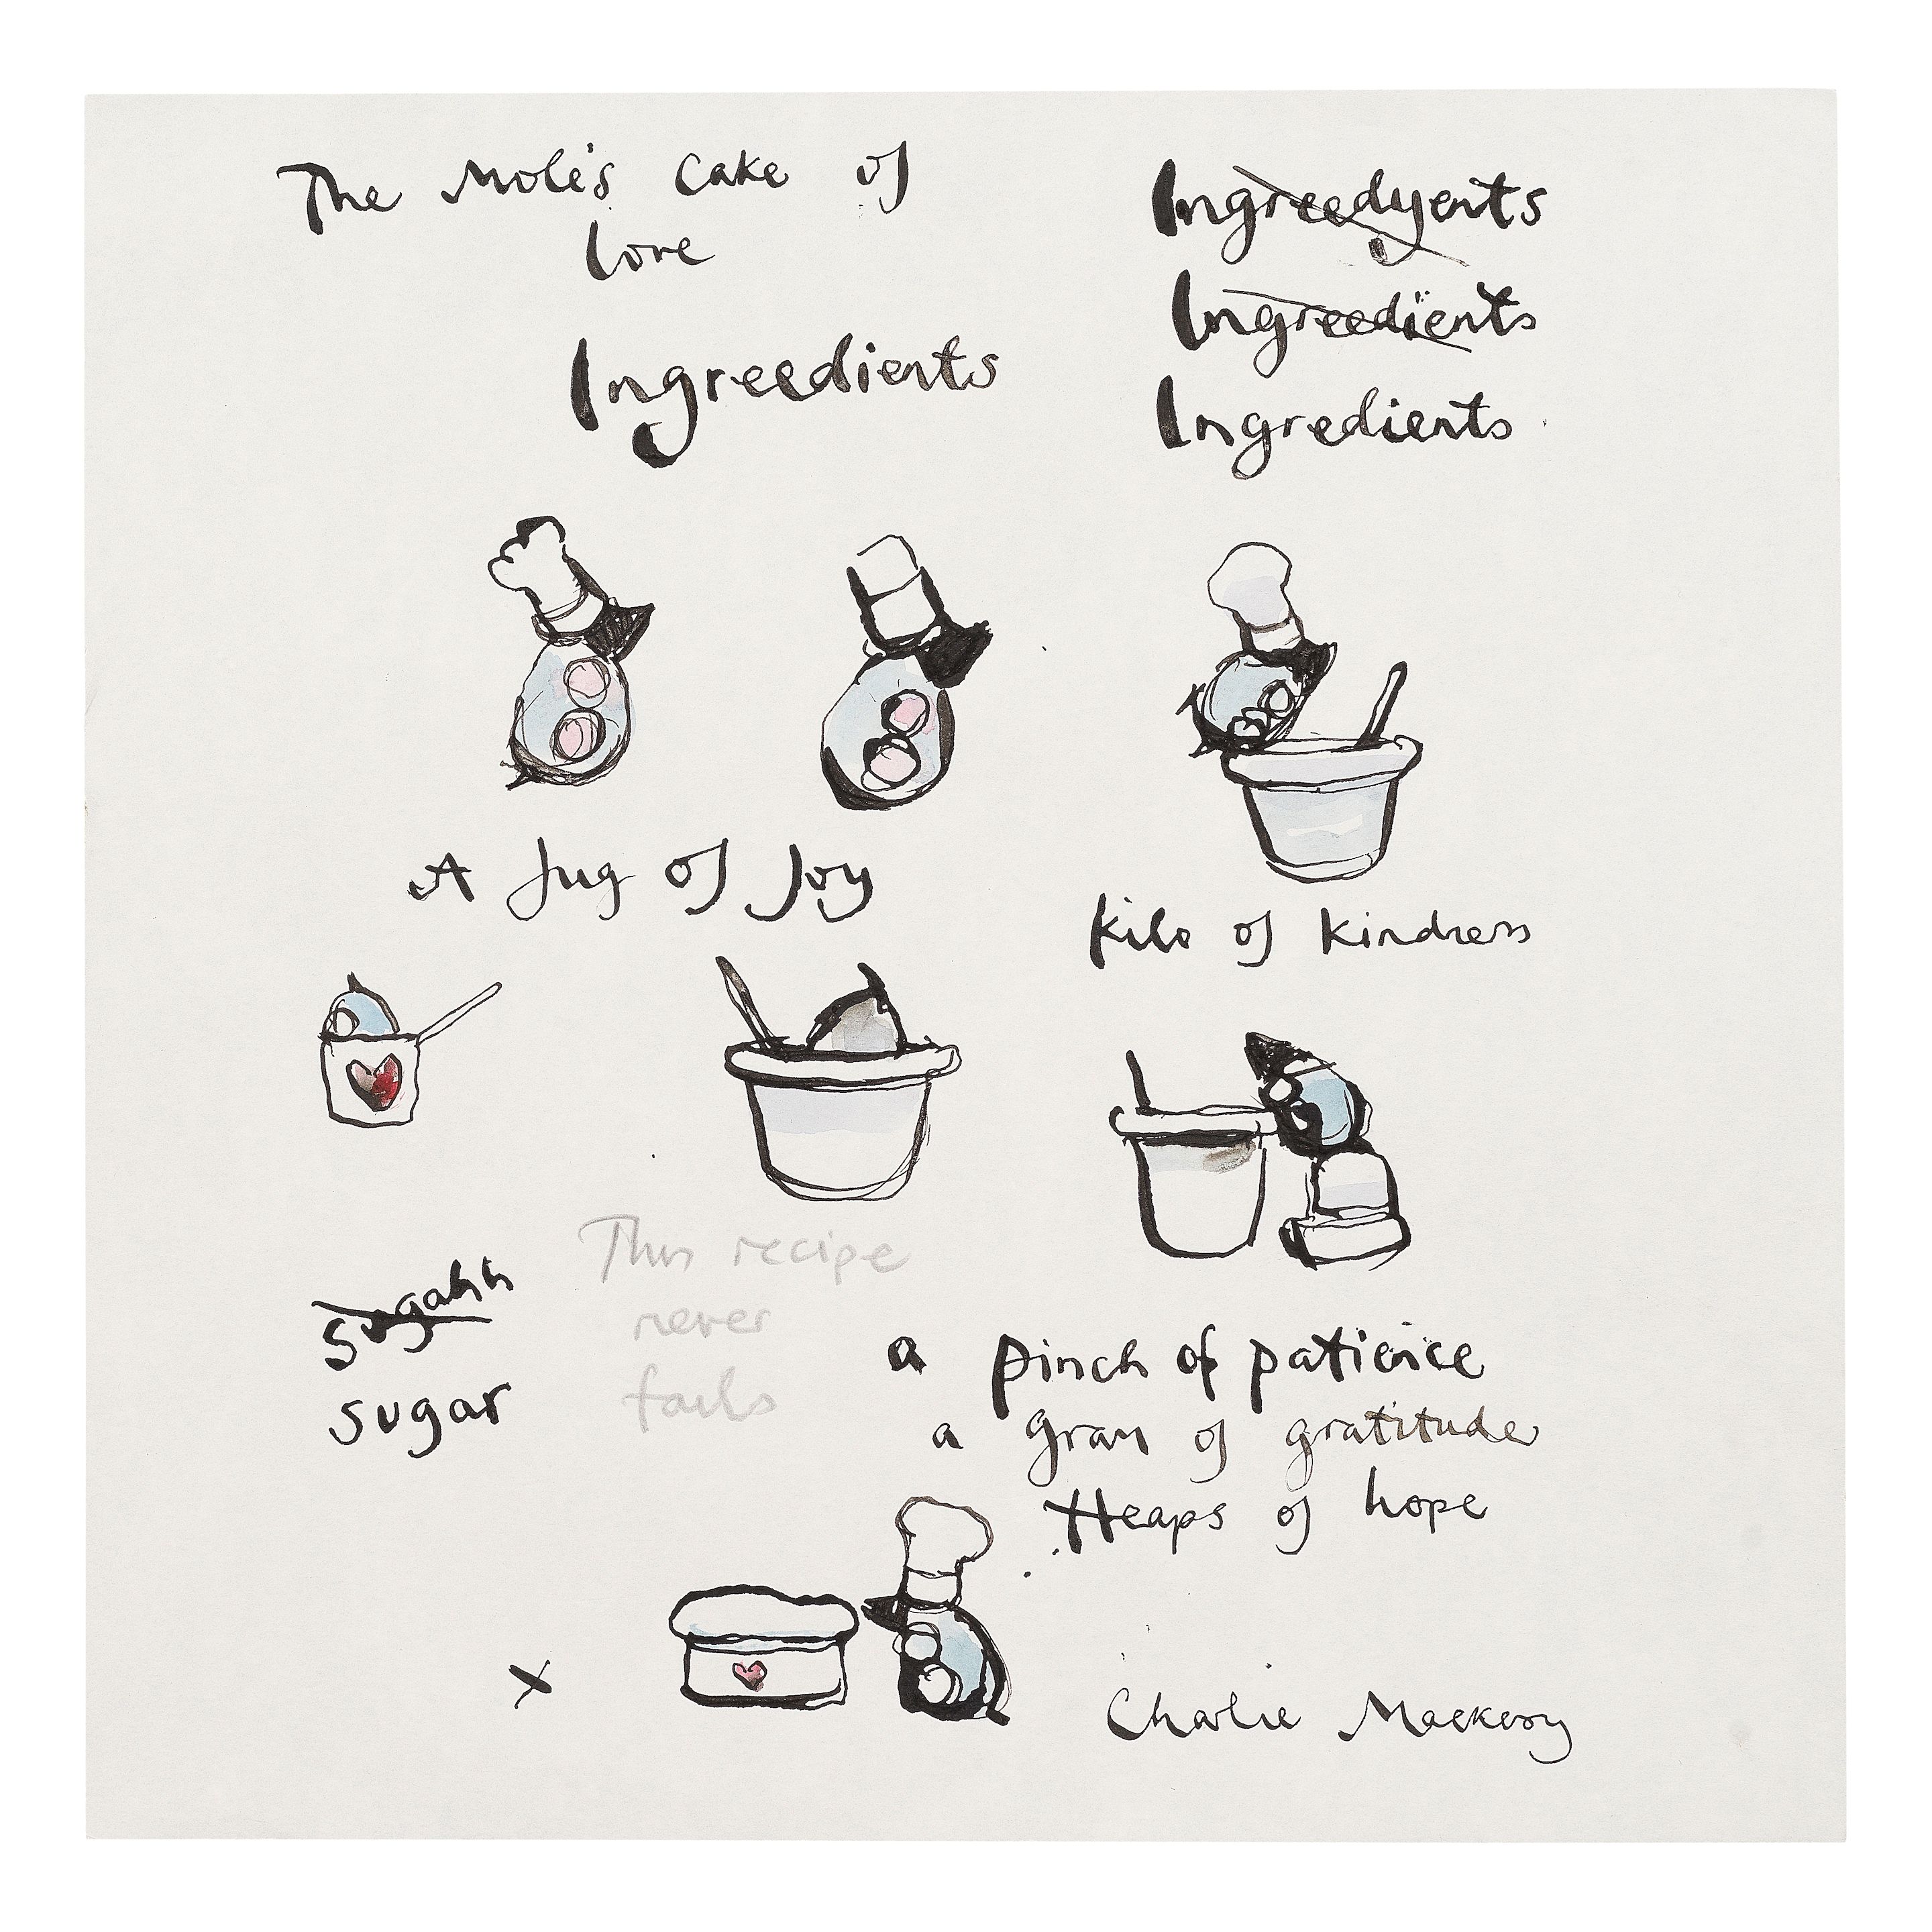 The Mole's Cake of
love
Ingreedyents
Ingreedïents
Ingreedients
Ingredients
A Jug of Joy
kilo of kindness
This recipe
never
fails
sugahh
sugar
a pinch of patience
a gram of gratitude
Heaps of hope
x
Charlie Mackesy